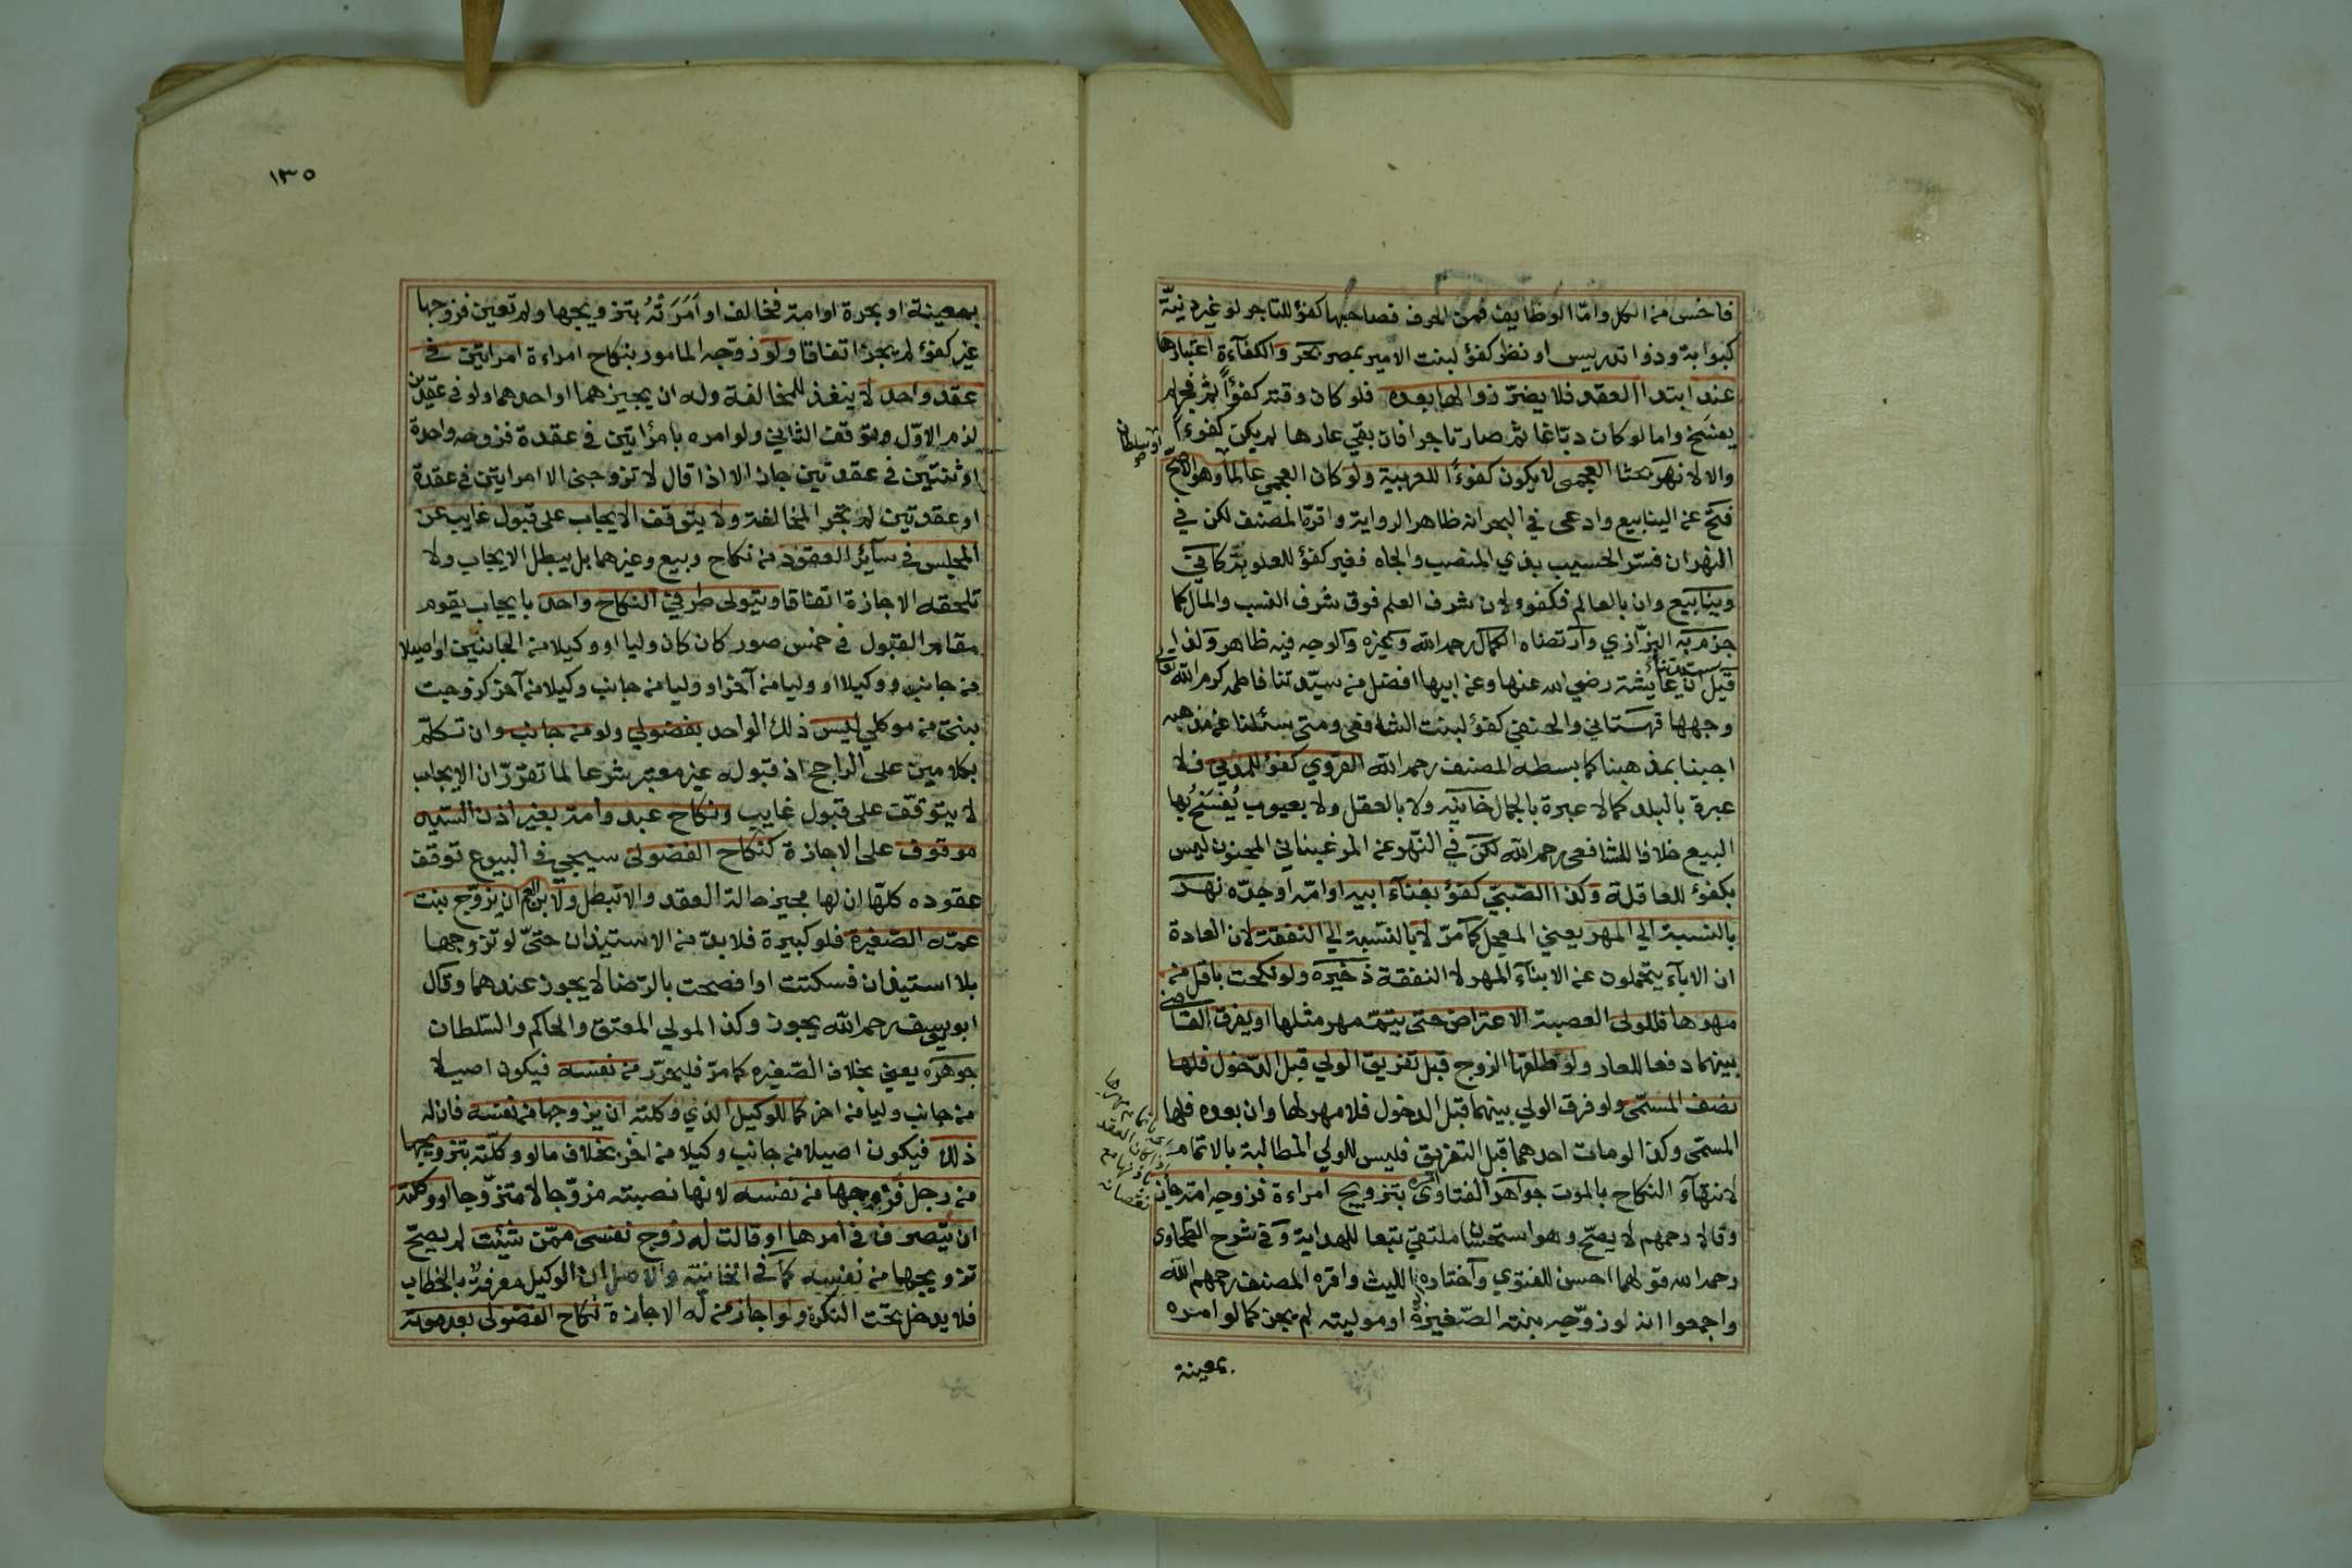 فاخس من الكل واما الوظايف فمن الحرف فصاحبها كفؤ للتاجر لو غير دنيّة
كبوابة وذوا تدريس او نظر كفؤ لبنت الامير بمصر بحر والكفآءة اعتبارها
عند ابتدا العقد فلا يضرّ زوالها بعده فلو كان وقته كفؤاً ثم فجر لم
يفسخ واما لو كان دبّاغا ثم صار تاجرا فان بقي عارها لم يكن كفوءاً
والا لا نهر بحثا العجمى لا يكون كفوءًا للعربية ولو كان العجمي عالماً وهو الاصحّ
او سلطانا
صح
فتح عن الينابيع وادعى في البحر انه ظاهر الرواية واقرّه المصنف لكن في
النهر ان فسّر الحسيب بذي المنصب والجاه فغير كفؤ للعلوية كما في
وينابيع وان بالعالم فكفوء لان شرف العلم فوق شرف النسب والمال كما
جزم به البزّازي وارتضاه الكمال رحمه الله وغيره والوجه فيه ظاهر ولذا
قيل ان سيدتنا عايشة رضي الله عنها وعن ابيها افضل من سيّدتنا فاطمه كرم الله تعالى
وجهها قهستاني والحنفي كفؤ لبنت الشافعى ومتى سئلنا عن مذهبه
اجبنا بمذهبنا كما بسطه المصنف رحمه الله القروي كفؤ للمدني فلا
عبرة بالبلد كما لا عبرة بالجمال خانيّه ولا بالعقل ولا بعيوب يُفسَخُ بها
البيع خلافا للشافعى رحمه الله لكن في النّهر عن المرغيناني المجنون ليس
بكفؤ للعاقلة وكذا الصّبيّ كفؤ بغنآء ابيه او امّه او جدّه نهر
بالنسبة الي المهر يعني المعجل كما مرّ لا بالنّسبة الي النفقة لان العادة
ان الابآء يتحملون عن الابنآء المهر لا النفقة ذخيره ولو نكحت باقل من
مهرها فللولى العصبة الاعتراض حتى يتمّ مهر مثلها او يفرق القاضي
بينهما دفعا للعار ولو طلقها الزوج قبل تفريق الولي قبل الدّخول فلها
نصف المسمّى ولو فرق الولي بينهما قبل الدخول فلا مهر لها وان بعده فلها
المسمّى وكذا لو مات احدهما قبل التفريق فليس للولي المطالبة بالاتمام
لانتهآء النكاح بالموت جواهر الفتاوى امره بتزويج امراءة فزوجه امته جاز
وقالا رحمهم لا يصحّ وهو استحسان ملتقي تبعا للهداية وفي شرح الطّحاوى
رحمه الله قولهما احسن للفتوي واختاره ابو الليث واقره المصنف رحمهم الله
واجمعوا انه لو زوّجه بنته الصّغيرة او موليته لم يجز كما لو امره
بمعينة
١٣٥
بمعينة او بحرة او امة فخالف او اَمَرَتْهُ بتزويجها ولم تعين فزوجها
غير كفؤ لم يجز اتفاقا ولو زوّجه المامور بنكاح امراءة امراتين في
عقد واحد لا ينفذ للمخالفة وله ان يجيزهما او احدهما ولو في عقدين
لزم الاوّل وتوقف الثاني ولو امره بامراتين في عقدة فزوجه واحدة
او ثنتين في عقدتين جاز الا اذا قال لا تزوجنى الا امراتين في عقدة
او عقدتين لم تجز المخالفة ولا يتوقف الايجاب على قبول غايب عن
المجلس في سآئر العقود من نكاح وبيع وغيرهما بل يبطل الايجاب ولا
تلحقه الاجازة اتفاقا ويتولى طرفي النكاح واحد بايجاب يقوم
مقام القبول في خمس صور كان كان وليا او وكيلا من الجانبين او اصيلا
من جانب ووكيلا او وليا من آخر او وليا من جانب وكيلا من آخر كزوجت
بنتي من موكلي ليس ذلك الواحد بفضولي ولو من جانب وان تكلّم
بكلامين على الراجح اذ قبوله غير معتبر شرعا لما تقرّر ان الايجاب
لا يتوقّف على قبول غايب ونكاح عبد وامة بغير اذن السّيد
موقوف على الاجازة كنكاح الفضولى سيجي في البيوع توقف
عقوده كلّها ان لها مجيز حالة العقد والا تبطل ولابن العم ان يزوّج بنت
عمّه الصّغيرة فلو كبيرة فلا بدّ من الاستيذان حتىّ لو تزوجها
بلا استيذان فسكتت او افصحت بالرّضا لا يجوز عندهما وقال
ابو يوسف رحمه الله يجوز وكذا المولي المعتق والحاكم والسّلطان
جوهره يعني بخلاف الصّغيره كما مرّ فليحرّر من نفسه فيكون اصيلا
من جانب وليا من اخر كما للوكيل الذي وكلته ان يزوجها من نفسه فان له
ذلك فيكون اصيلا من جانب وكيلا من اخر بخلاف ما لو وكلّته بتزويجها
من رجل فزوجها من نفسه لانها نصبته مزوّجا لا متزوّجا او وكلته
ان يتصرف في امرها او قالت له زوج نفسى ممّن شئت لم يصحّ
تزويجها من نفسه كما في الخانيّة والاصل ان الوكيل معرفة بالخطاب
فلا يدخل تحت النكرة ولو اجاز من له الاجازة نكاح الفضولى بعد موته